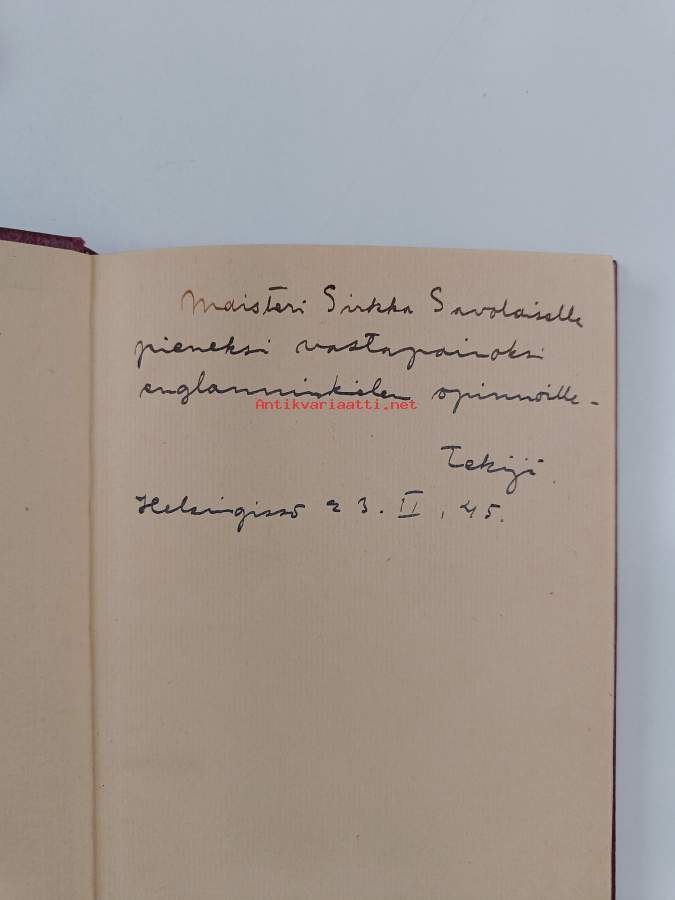 Maisteri Sirkka Savolaiselle
pieneksi vastapainoksi
englanninkielen opinnoille -
Antikvariaatti.net
Tekijä.
Helsingissä 23. II. 45.